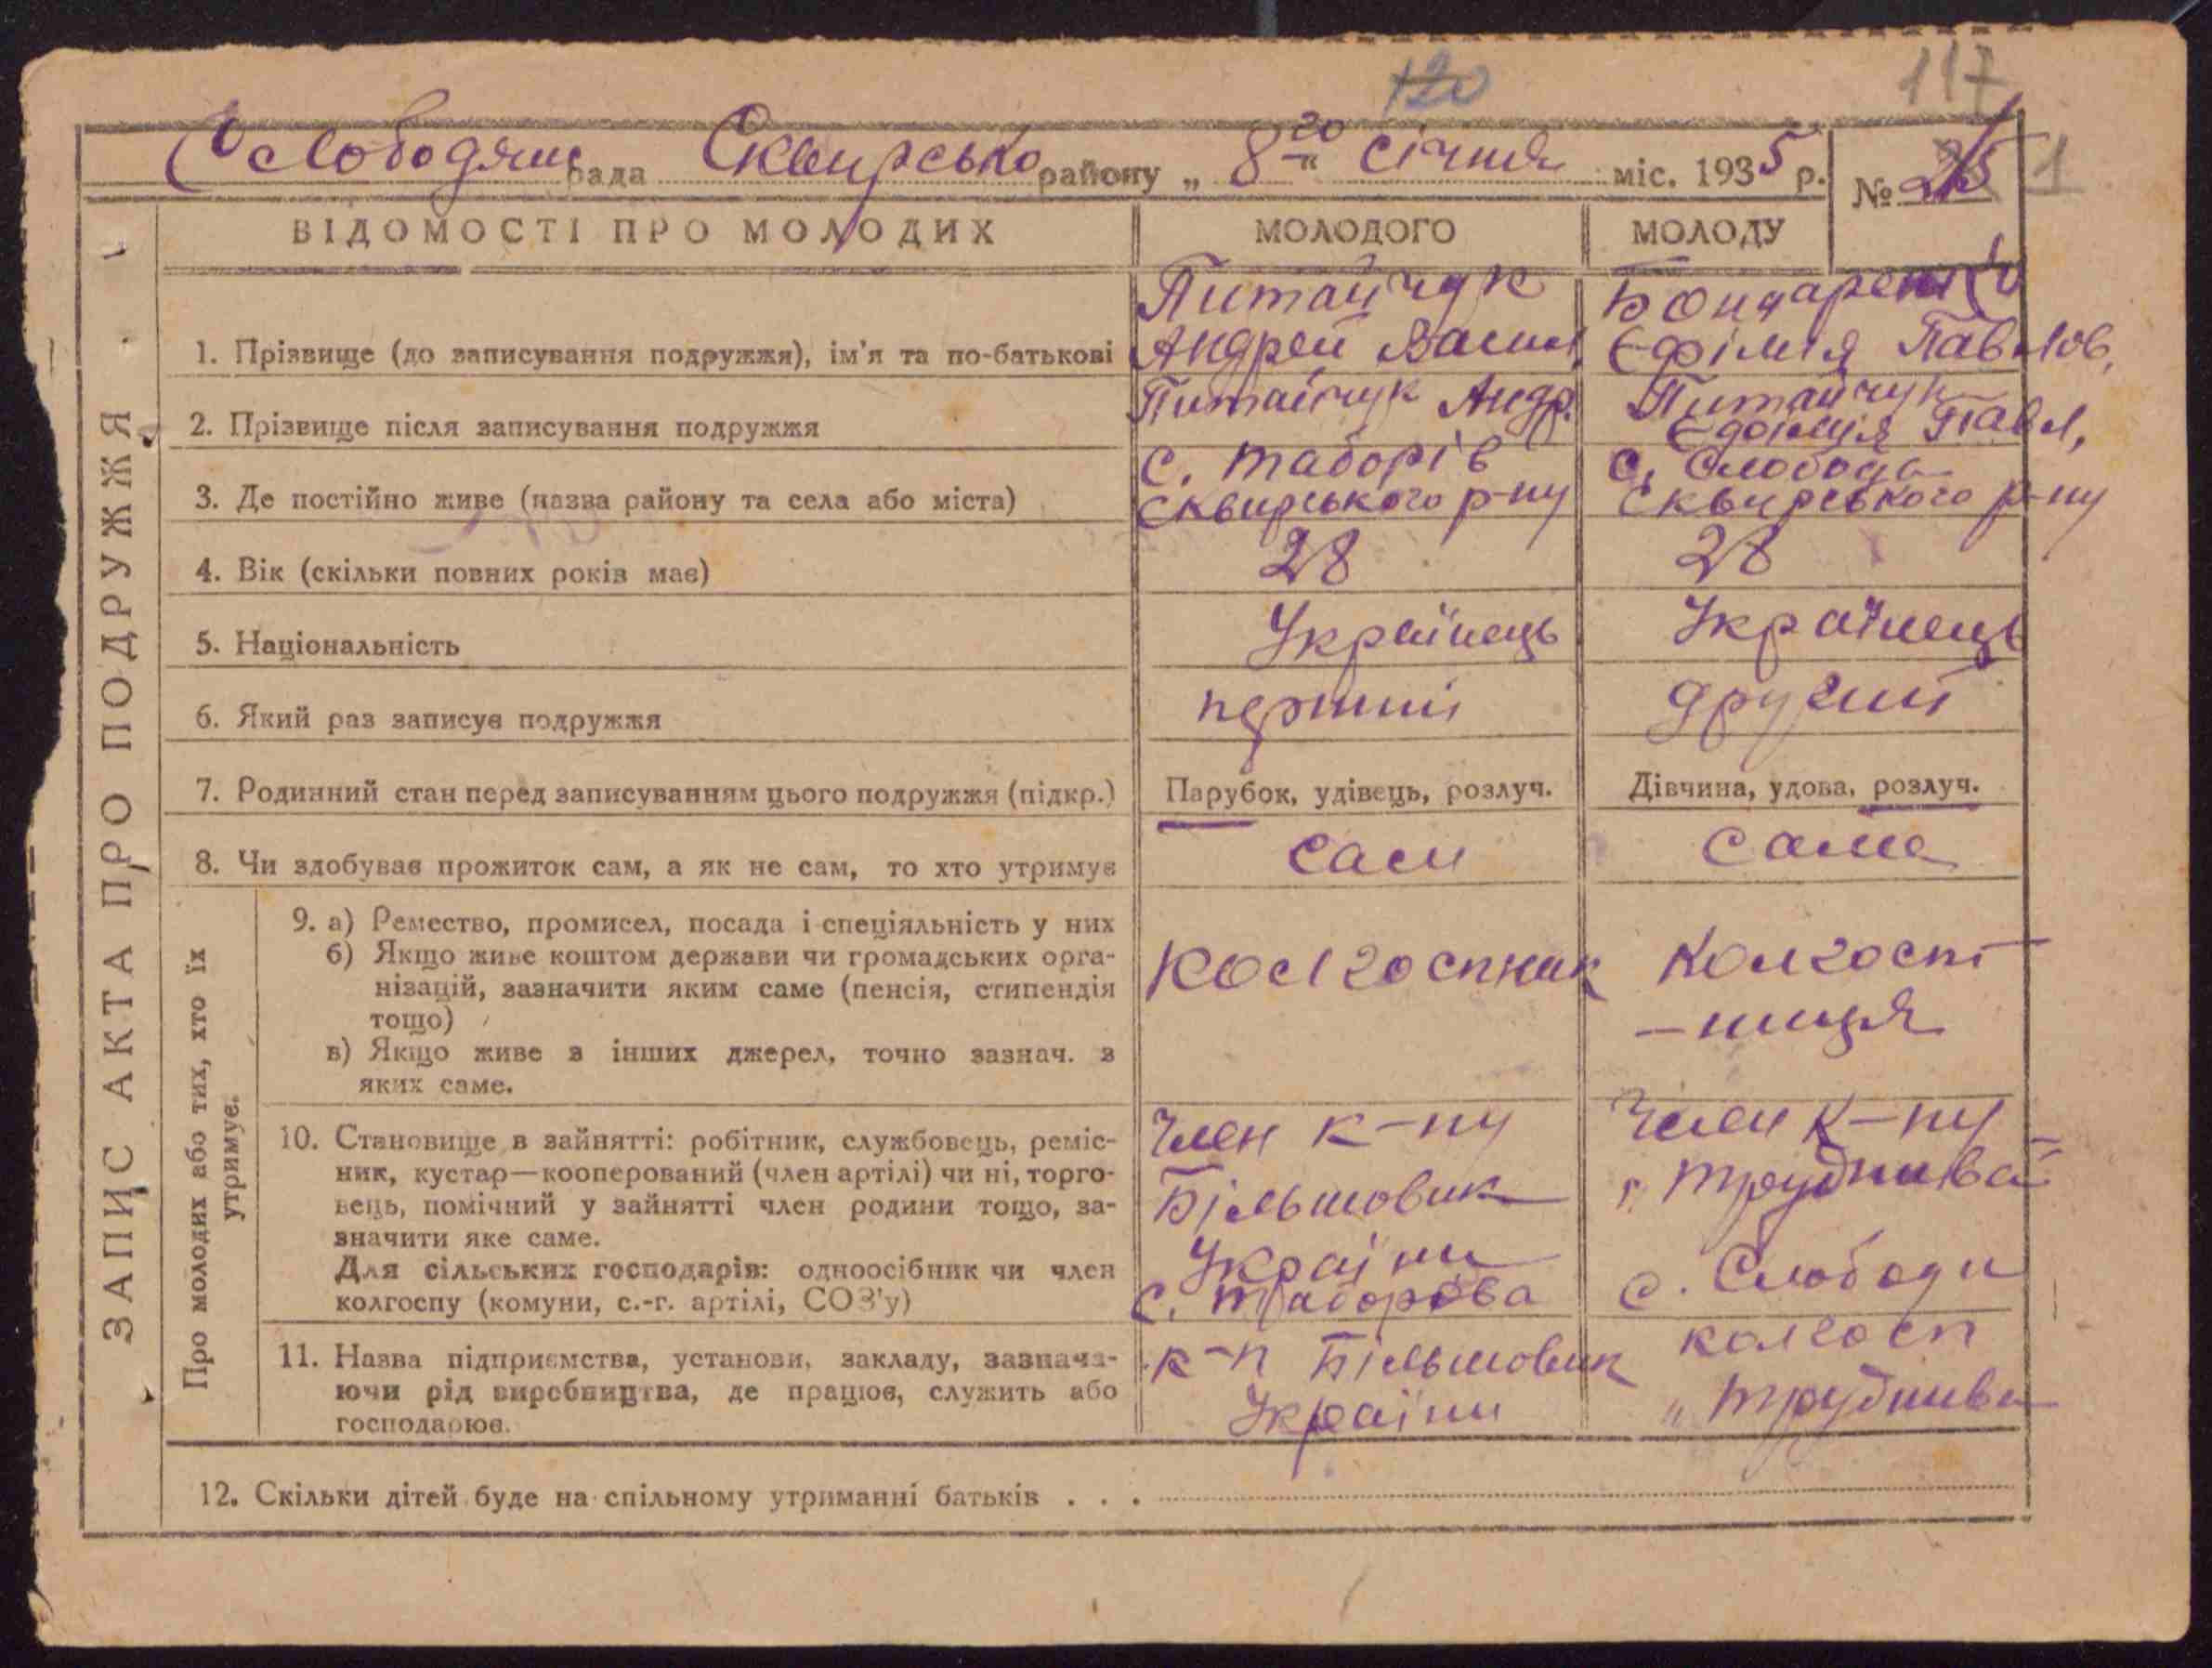 120 117
Слободянс рада Сквирсько району „ 8го " січня міс. 1935 р. № 1
ЗАПИС АКТА ПРО ПОДРУЖЖЯ
ВІДОМОСТІ ПРО МОЛОДИХ МОЛОДОГО МОЛОДУ
Питайчук Бондаренко
1. Прізвище (до записування подружжя), ім'я та по-батькові Андрей Васил. Єфімія Павлов.
2. Прізвище після записування подружжя Питайчук Андр. Питайчук
Павл.
с. Таборів с. Слобода
3. Де постійно живе (назва району та села або міста) Сквирського р-ну Сквирського р-ну
4. Вік (скільки повних років має) 28 28
5. Національність Українець Українець
6. Який раз записує подружжя перший другий
7. Родинний стан перед записуванням цього подружжя (підкр.) Парубок, удівець, розлуч. Дівчина, удова, розлуч.
8. Чи здобуває прожиток сам, а як не сам, то хто утримує сам сама
Про молодих або тих, хто їх
утримує.
9. а) Ремество, промисел, посада і спеціяльність у них
б) Якщо живе коштом держави чи громадських орга-
нізацій, зазначити яким саме (пенсія, стипендія
тощо)
в) Якщо живе з інших джерел, точно зазнач. з
яких саме.
колгоспник колгосп
-ниця
10. Становище в зайнятті: робітник, службовець, реміс-
ник, кустар—кооперований (член артілі) чи ні, торго-
вець, помічний у зайнятті член родини тощо, за-
значити яке саме.
Для сільських господарів: одноосібник чи член
колгоспу (комуни, с.-г. артілі, СОЗ'у)
Член к-пу
Більшовик
України
с. Таборова
Член к-пу
„Труднива"
с. Слободи
11. Назва підприємства, установи, закладу, зазнача-
ючи рід виробництва, де працює, служить або
господарює.
к-п Більшовик
України
колгосп
„Труднива
12. Скільки дітей буде на спільному утриманні батьків . . .